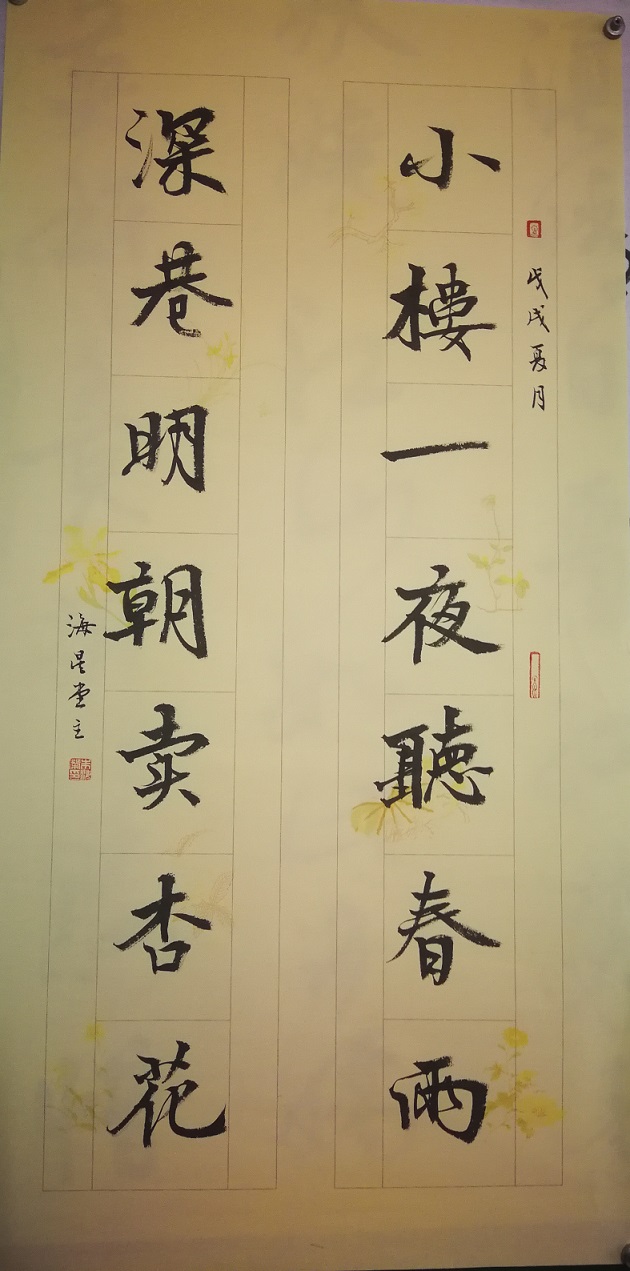 戊戌夏月
小樓一夜聽春雨
深巷明朝卖杏花
海星堂主